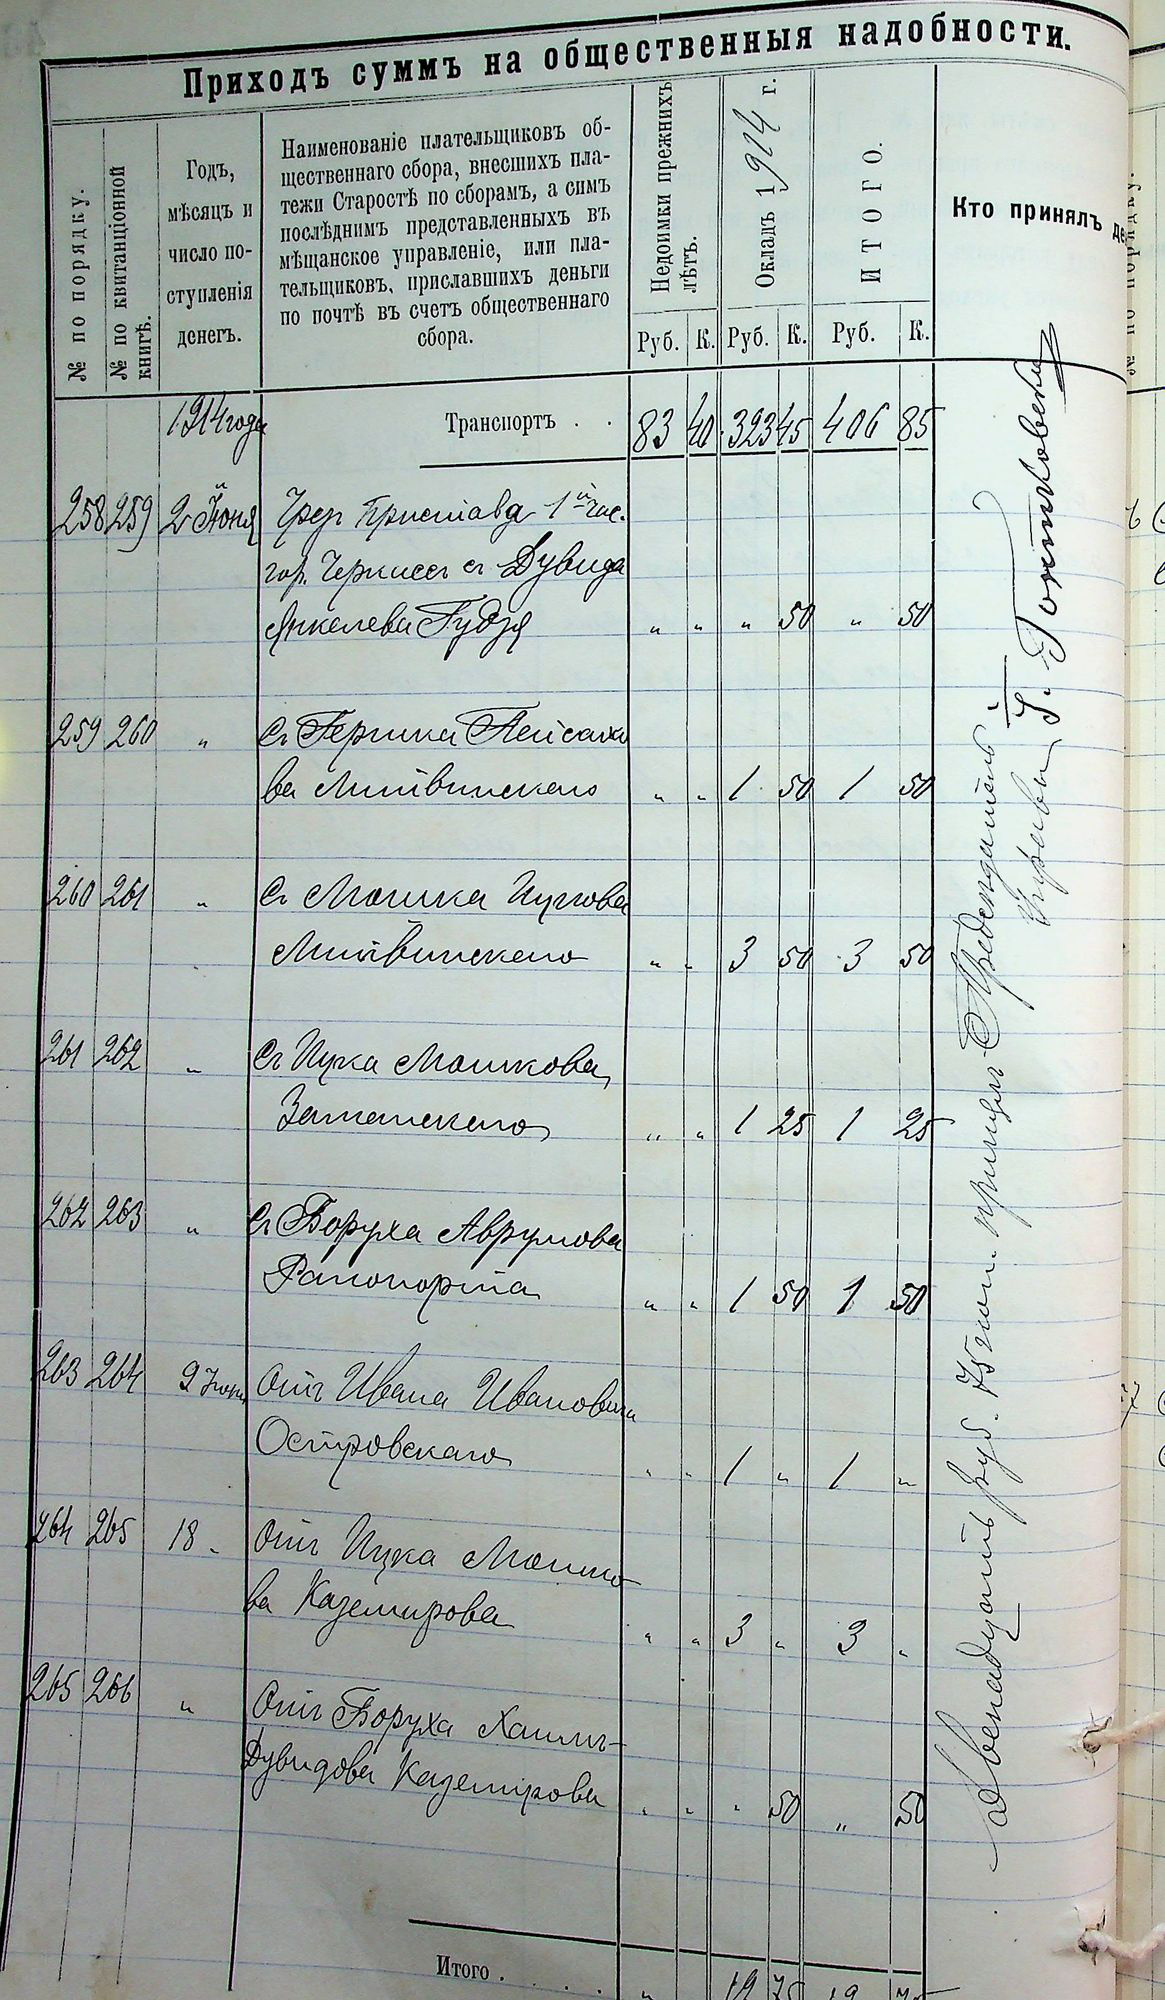 Приходъ суммъ на общественныя надобности.
№ по порядку.
№ по квитанціонной книгѣ.
Годъ,
мѣсяцъ и
число по-
ступленія
денегъ.
Наименованіе плательщиковъ об-
щественнаго сбора, внесшихъ пла-
тежи Старостѣ по сборамъ, а симъ
послѣднимъ представленныхъ въ
мѣщанское управленіе, или пла-
тельщиковъ, приславшихъ деньги
по почтѣ въ счетъ общественнаго
сбора.
Недоимки прежнихъ лѣтъ.
Окладъ 1914 г.
ИТОГО.
Кто принялъ де
Руб. К. Руб. К. Руб. К.
1914 года Транспортъ . . 83 40 323 45 406 85
258 259 2 Іюня Чрез Пристава 1й час.
гор. Черкассъ съ Дувида
Янкелева Гудзя " " " 50 " 50
259 260 " Съ Гершка Пейсахо
ва Литвинскаго " " 1 50 1 50
260 261 " Съ Мошка Ицкова
Литвинскаго " " 3 50 3 50
261 262 " Съ Ицка Мошкова
" " 1 25 1 25
262 263 " Съ Боруха Аврумова
Рапопорта " " 1 50 1 50
263 264 9 Іюня Отъ Ивана Ивановича
Островскаго " " 1 " 1 "
264 265 18 " Отъ Ицка Мошко
ва Каземирова " " 3 " 3 "
265 266 " Отъ Боруха Хаимъ-
Дувидова Каземирова " " " 50 " 50
Итого . . . . " 12 75 12 75
Двенадцать руб. 75 коп. принялъ Предсѣдатель
Управы